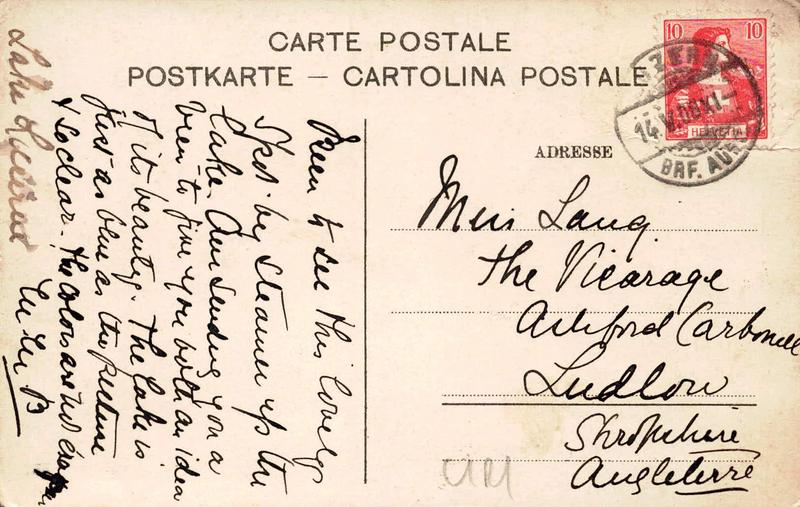 CARTE POSTALE
POSTKARTE – CARTOLINA POSTALE
10 10
HELVETIA
14.V.08.XI–
BRF. AUF
ADRESSE
Miss Lang
The Vicarage
Ashford Carbonell
Ludlow
Shropshire
Angleterre
Been to see this lovely
spot by steamer up the
Lake. Am sending you a
view to give you with an idea
of its beauty. The Lake is
just as blue as this picture
& so clear. The colors are
Lake Lucerne